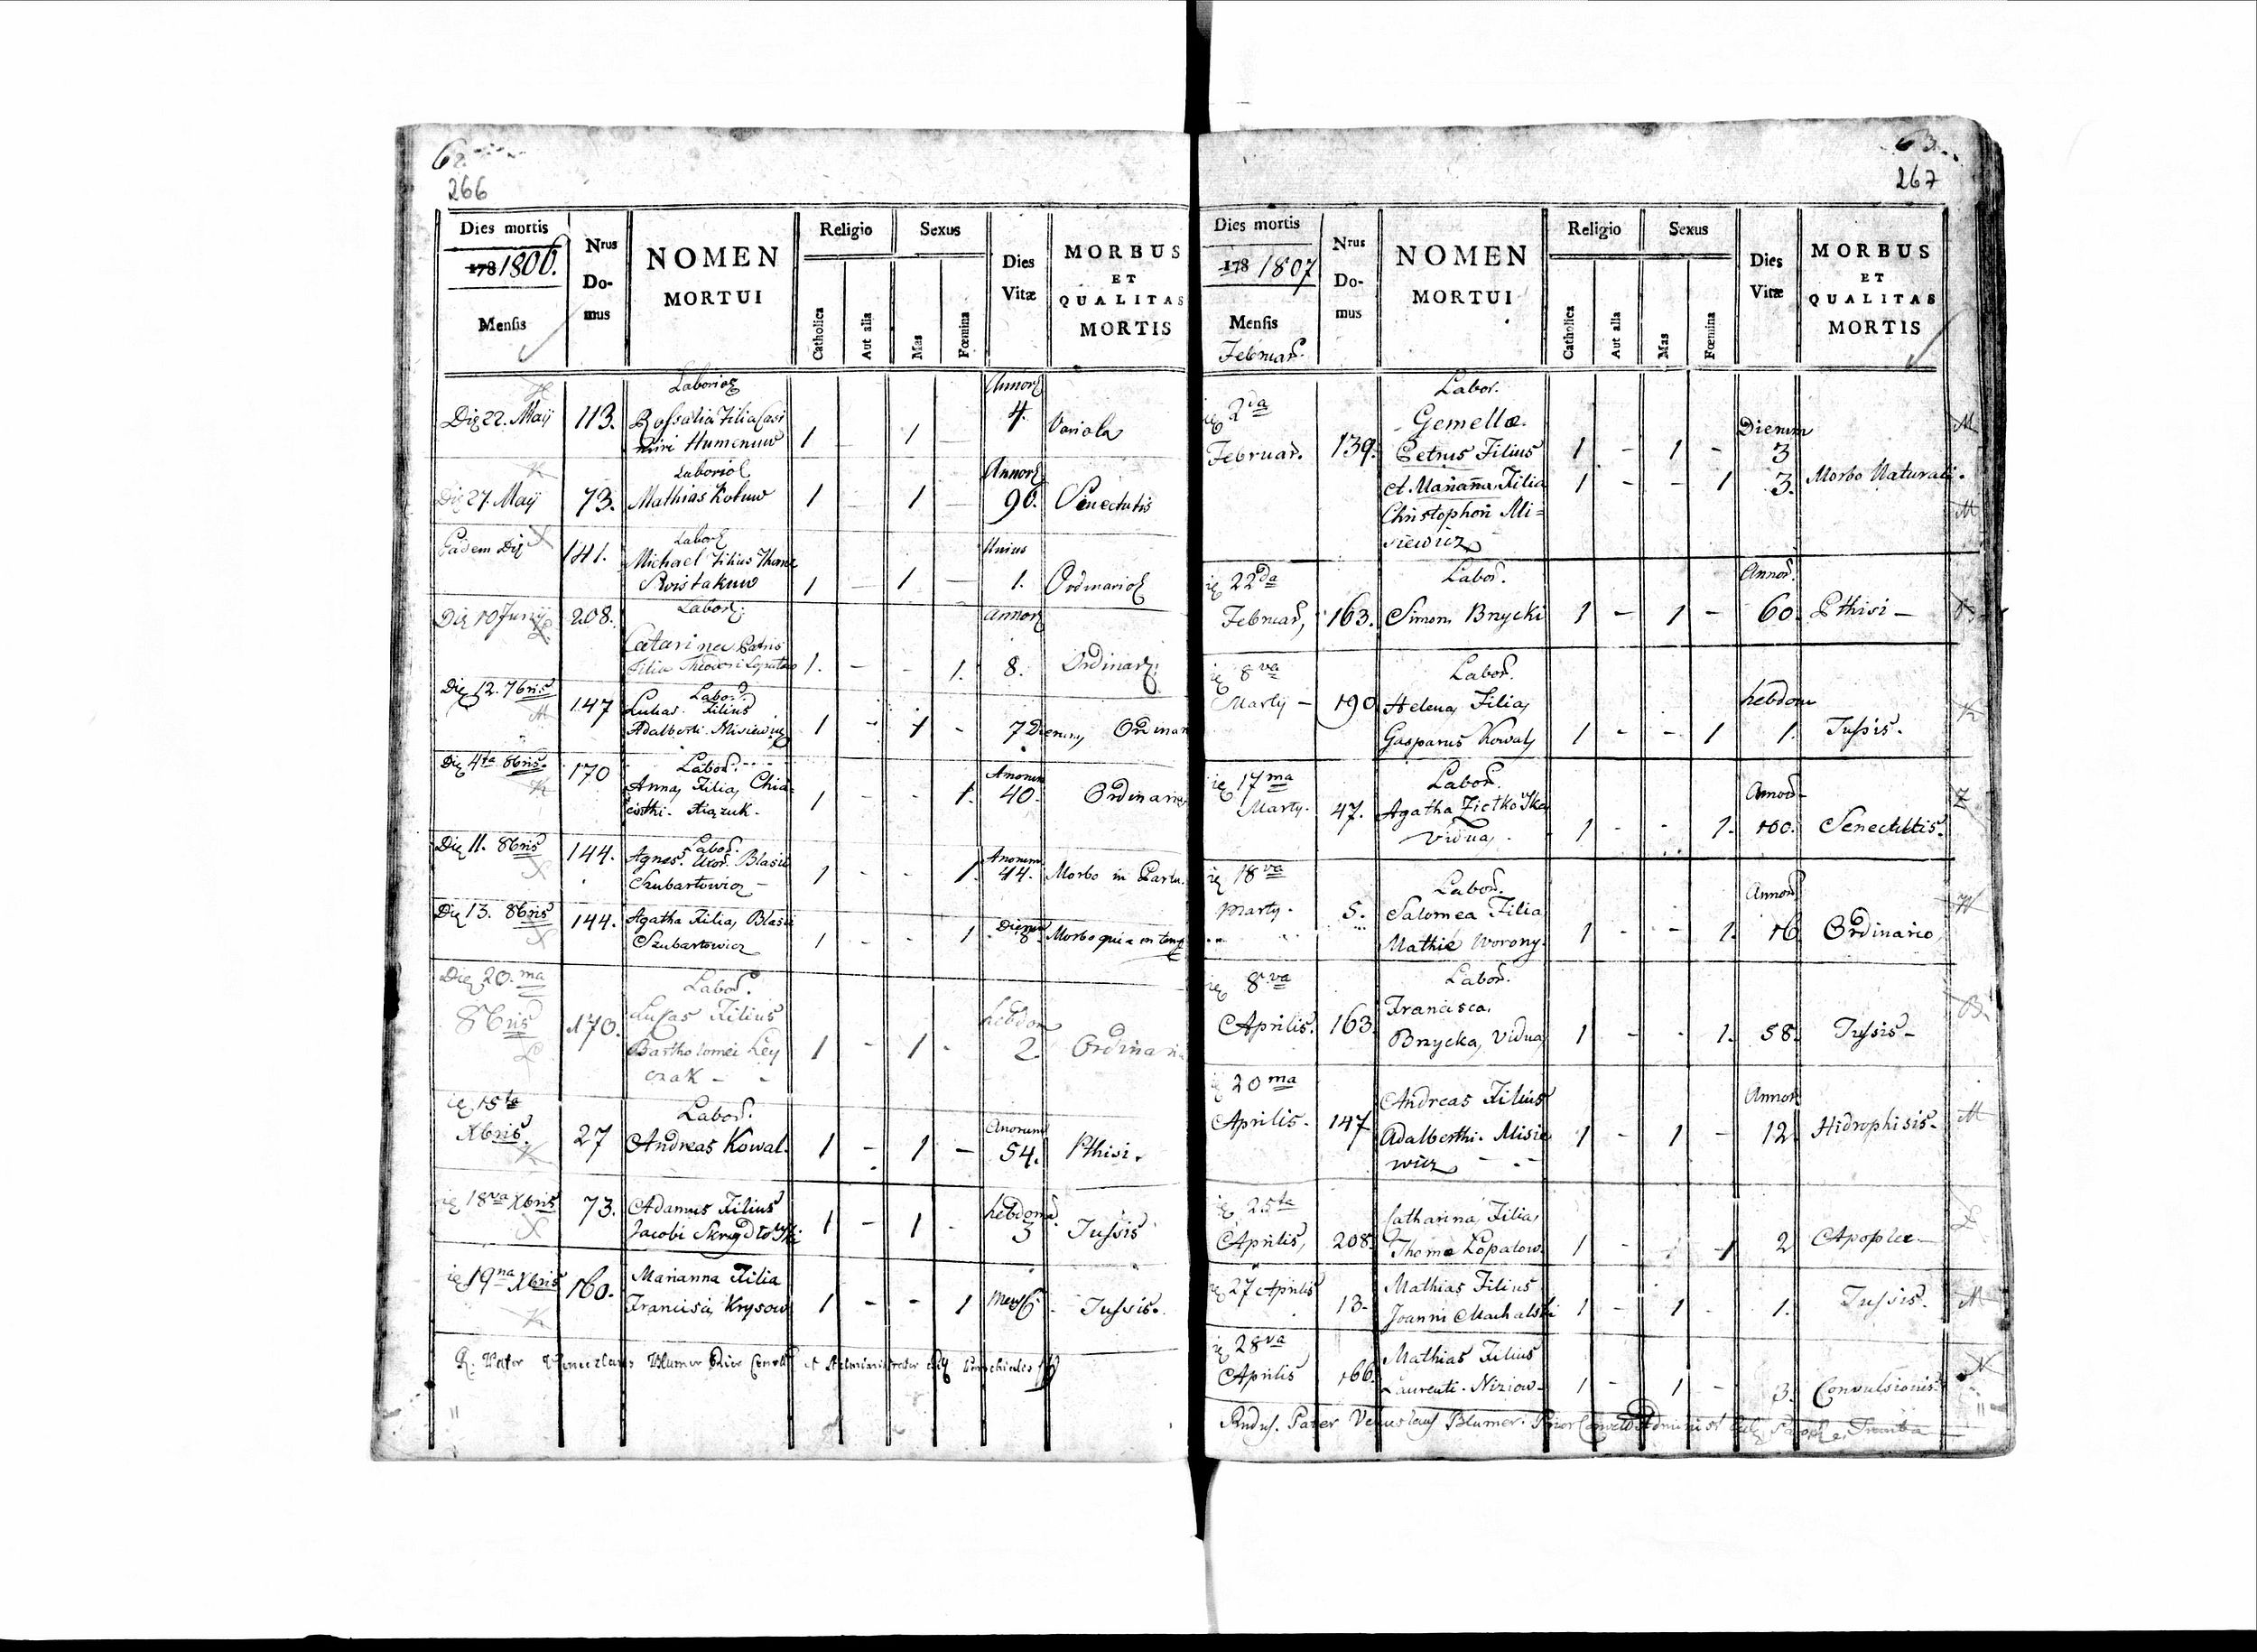 62.
266
Dies mortis
178 1806.
Mensis
Nrus
Do-
mus
NOMEN
MORTUI
Religio
Catholica
Aut alia
Sexus
Mas
Fœmina
Dies
Vitæ
MORBUS
ET
QUALITAS
MORTIS
Die 22. Maij 113. Rossalia Filia Casi
miri Humeniuw 1 – 1 – Annor 4. Variola
Die 27 Maij 73. Mathias Kotuw 1 1 – Annor 90. Senectutis
Eadem Die 141. Labor
Michael Filius Thome
1 – 1 – Unius 1. Ordinario
Die 10 Junij 208. Labor.
Catarina
Filia Theodori 1. – – 1. Annor 8. Ordinar.
Die 12. 7bris 147 Labor.
Lukas Filius
Adalberti Misiewicz 1 – 1 – 7 Dierum Ordinar
Die 4ta 8bris. 170 Labor.
Anna Filia
1 – – 1. 40. Ordinario
Die 11. 8bris 144. Labor.
Agnes Uxor Blasii
Szubartowicz – 1 – – 1. 44. Morbo in Partu.
Die 13. 8bris 144. Agatha Filia Blasii
Szubartowicz 1 – – 1 8. Morbo
Die 20.ma
8bris 170. Labor.
Lukas Filius
Bartholomei Ley
czak – – 1 – 1 – hebdom 2. Ordinari
15ta
Xbris. 27 Labor.
Andreas Kowal. 1 – 1 – Anorum 54. Pthisi.
18va Xbris 73. Adamus Filius
Jacobi 1 – 1 – hebdom 3 Tussis
19na Xbris 160. Marianna Filia
Francisci Krysow 1 – – 1 Mens 6. Tussis.
R. Pater Blumer Prior
63.
267
Dies mortis
178 1807
Mensis
Februar.
Nrus
Do-
mus
NOMEN
MORTUI
Religio
Catholica
Aut alia
Sexus
Mas
Fœmina
Dies
Vitæ
MORBUS
ET
QUALITAS
MORTIS
Labor.
2da Gemellæ. Dierum
Februar. 139. Petrus Filius 1 – 1 – 3
et Marianna Filia 1 – – 1 3. Morbo Naturali.
Christophori Mi=
siewicz
22da Labor. Annor.
Februar, 163. Simon Brzycki 1 – 1 – 60. Pthisi –
8va Labor.
Martij – 190 Helena Filia hebdom
Gasparus Kowal 1 – – 1 1. Tussis.
17ma Labor. Annor
Martij. 47. Agatha
Vidua, 1 – – 1. 100. Senectutis.
18va Labor. Annor
Martij. 5. Salomea Filia
Mathie Worony. 1 – – 1. 16. Ordinario
8va Labor.
Francisca
Aprilis. 163. Brzycka, Vidua 1 – – 1. 58. Tussis –
20ma Andreas Filius Annor
Aprilis – 147 Adalberthi Misie
wicz – – 1 – 1 – 12. Hidrophisis.
25ta Catharina Filia
Aprilis, 208. Thome Lopatow. 1 – 1 2 Apoplex
27 Aprilis Mathias Filius
13. Joanni Machalski 1 – 1 – 1. Tussis.
28va Mathias Filius
Aprilis 166. Laurenti Niziow. 1 – 1 – 3. Convulsionis.
Rndus. Pater Blumer Prior